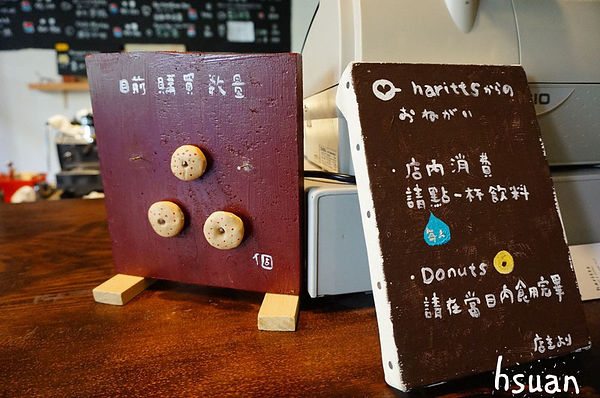 目前購買數量
個
harittsからの
おねがい
・店內消費
請點一杯飲料
每人
・Donuts
請在當日內食用完畢
店主より
hsuan